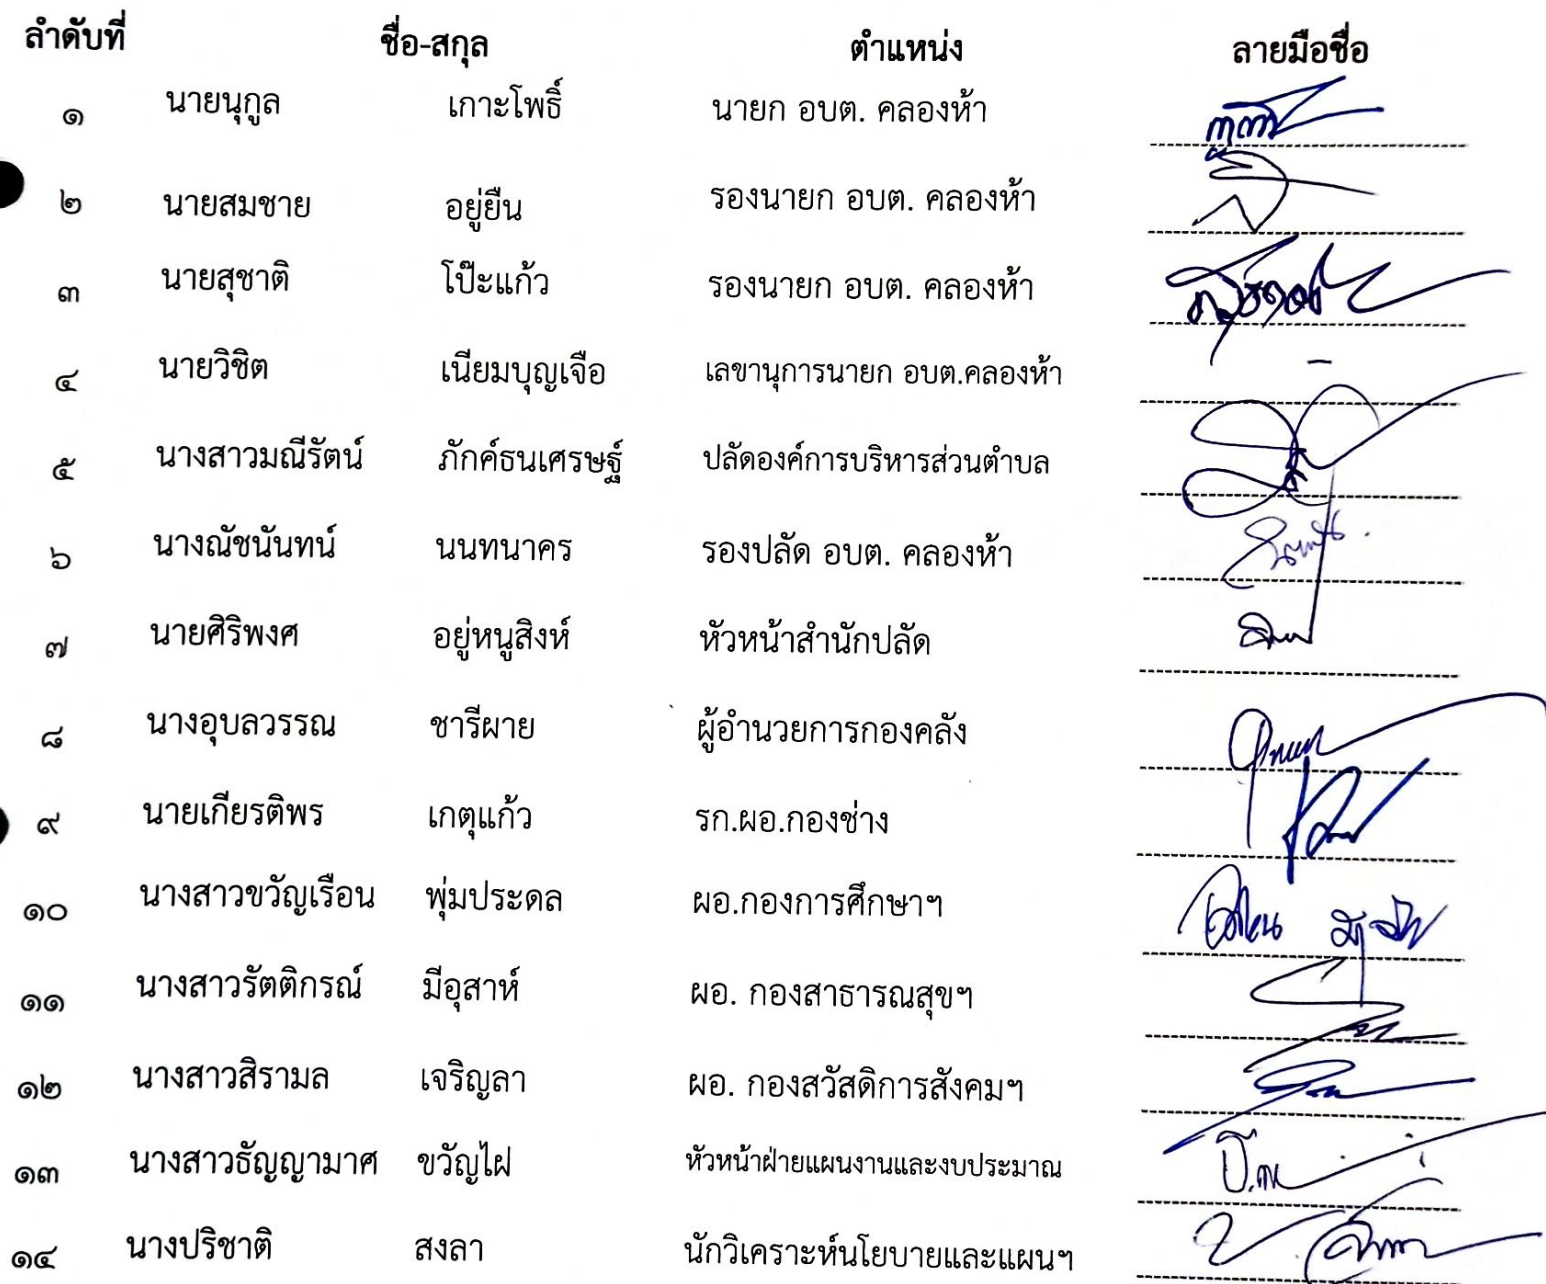 ลำดับที่ ชื่อ-สกุล ตำแหน่ง ลายมือชื่อ
๑ นายนุกูล เกาะโพธิ์ นายก อบต. คลองห้า
๒ นายสมชาย อยู่ยืน รองนายก อบต. คลองห้า
๓ นายสุชาติ โป๊ะแก้ว รองนายก อบต. คลองห้า
๔ นายวิชิต เนียมบุญเจือ เลขานุการนายก อบต.คลองห้า -
๕ นางสาวมณีรัตน์ ภักค์ธนเศรษฐ์ ปลัดองค์การบริหารส่วนตำบล
๖ นางณัชนันทน์ นนทนาคร รองปลัด อบต. คลองห้า
๗ นายศิริพงศ อยู่หนูสิงห์ หัวหน้าสำนักปลัด
๘ นางอุบลวรรณ ชารีผาย ผู้อำนวยการกองคลัง
๙ นายเกียรติพร เกตุแก้ว รก.ผอ.กองช่าง
๑๐ นางสาวขวัญเรือน พุ่มประดล ผอ.กองการศึกษาฯ
๑๑ นางสาวรัตติกรณ์ มีอุสาห์ ผอ. กองสาธารณสุขฯ
๑๒ นางสาวสิรามล เจริญลา ผอ. กองสวัสดิการสังคมฯ
๑๓ นางสาวธัญญามาศ ขวัญไฝ หัวหน้าฝ่ายแผนงานและงบประมาณ
๑๔ นางปริชาติ สงลา นักวิเคราะห์นโยบายและแผนฯ